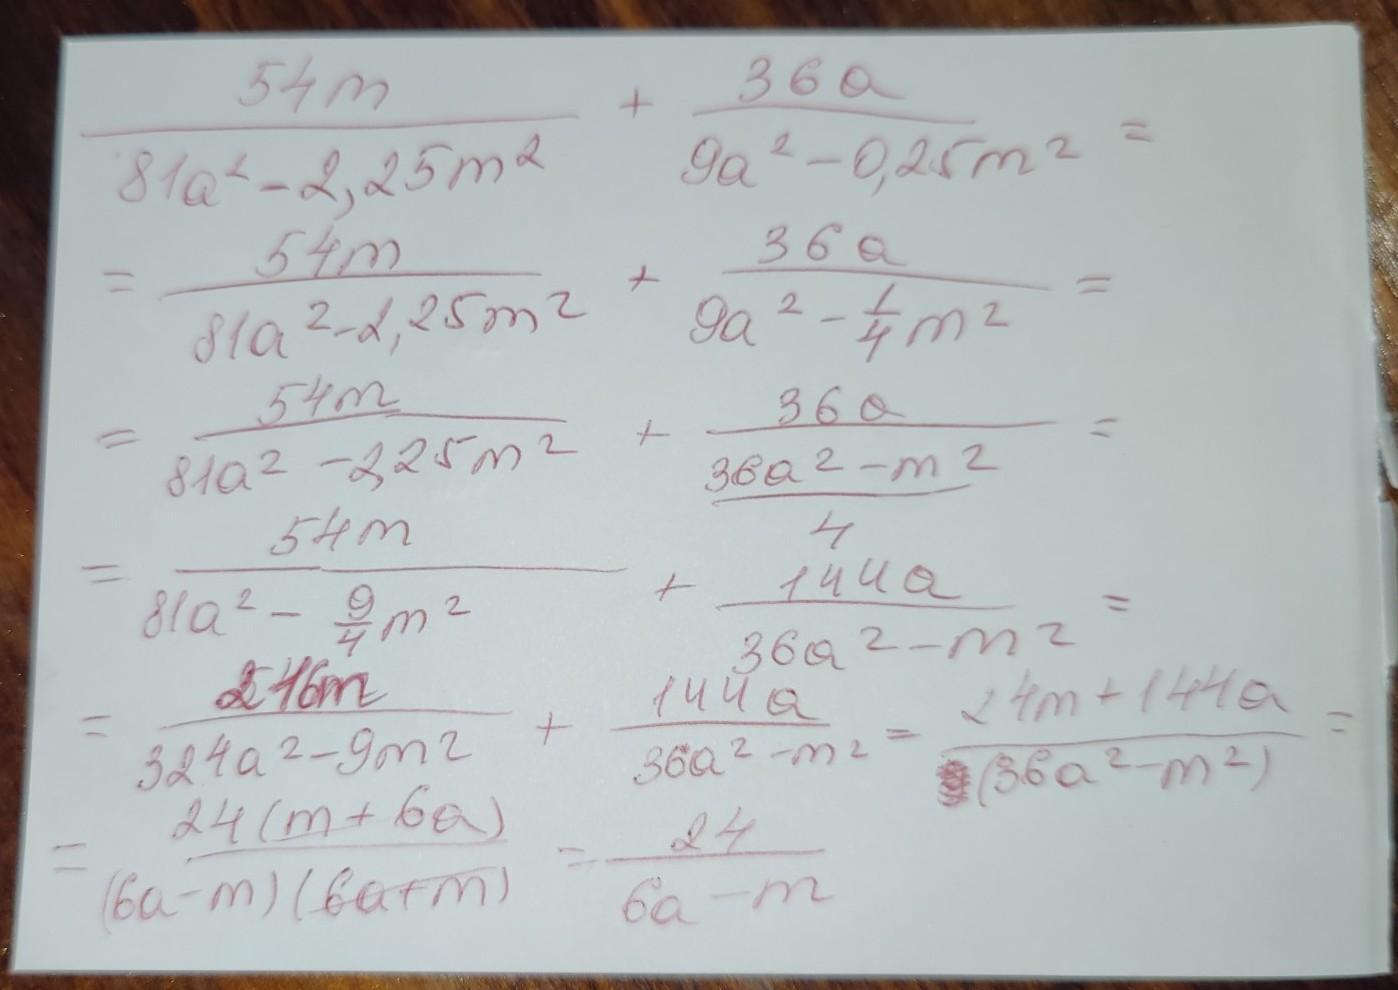 54m/(81a² - 2,25m²) + 36a/(9a² - 0,25m²) =
= 54m/(81a² - 2,25m²) + 36a/(9a² - 1/4 m²) =
= 54m/(81a² - 2,25m²) + 36a/((36a² - m²)/4) =
= 54m/(81a² - 9/4 m²) + 144a/(36a² - m²) =
= 216m/(324a² - 9m²) + 144a/(36a² - m²) = (24m + 144a)/(36a² - m²) =
= 24(m + 6a)/((6a - m)(6a + m)) = 24/(6a - m)